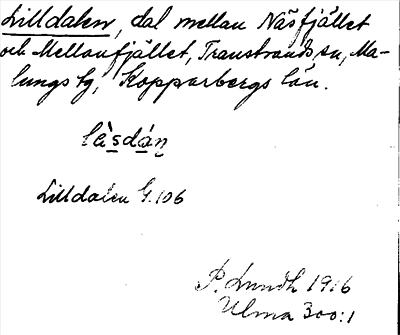 Lilldalen, dal mellan Näsfjället
och Mellanfjället, Transtrands sn, Ma-
lungs tg, Kopparbergs län.
Lilldalen G.106
P. Lundh 1916
Ulma 300:1